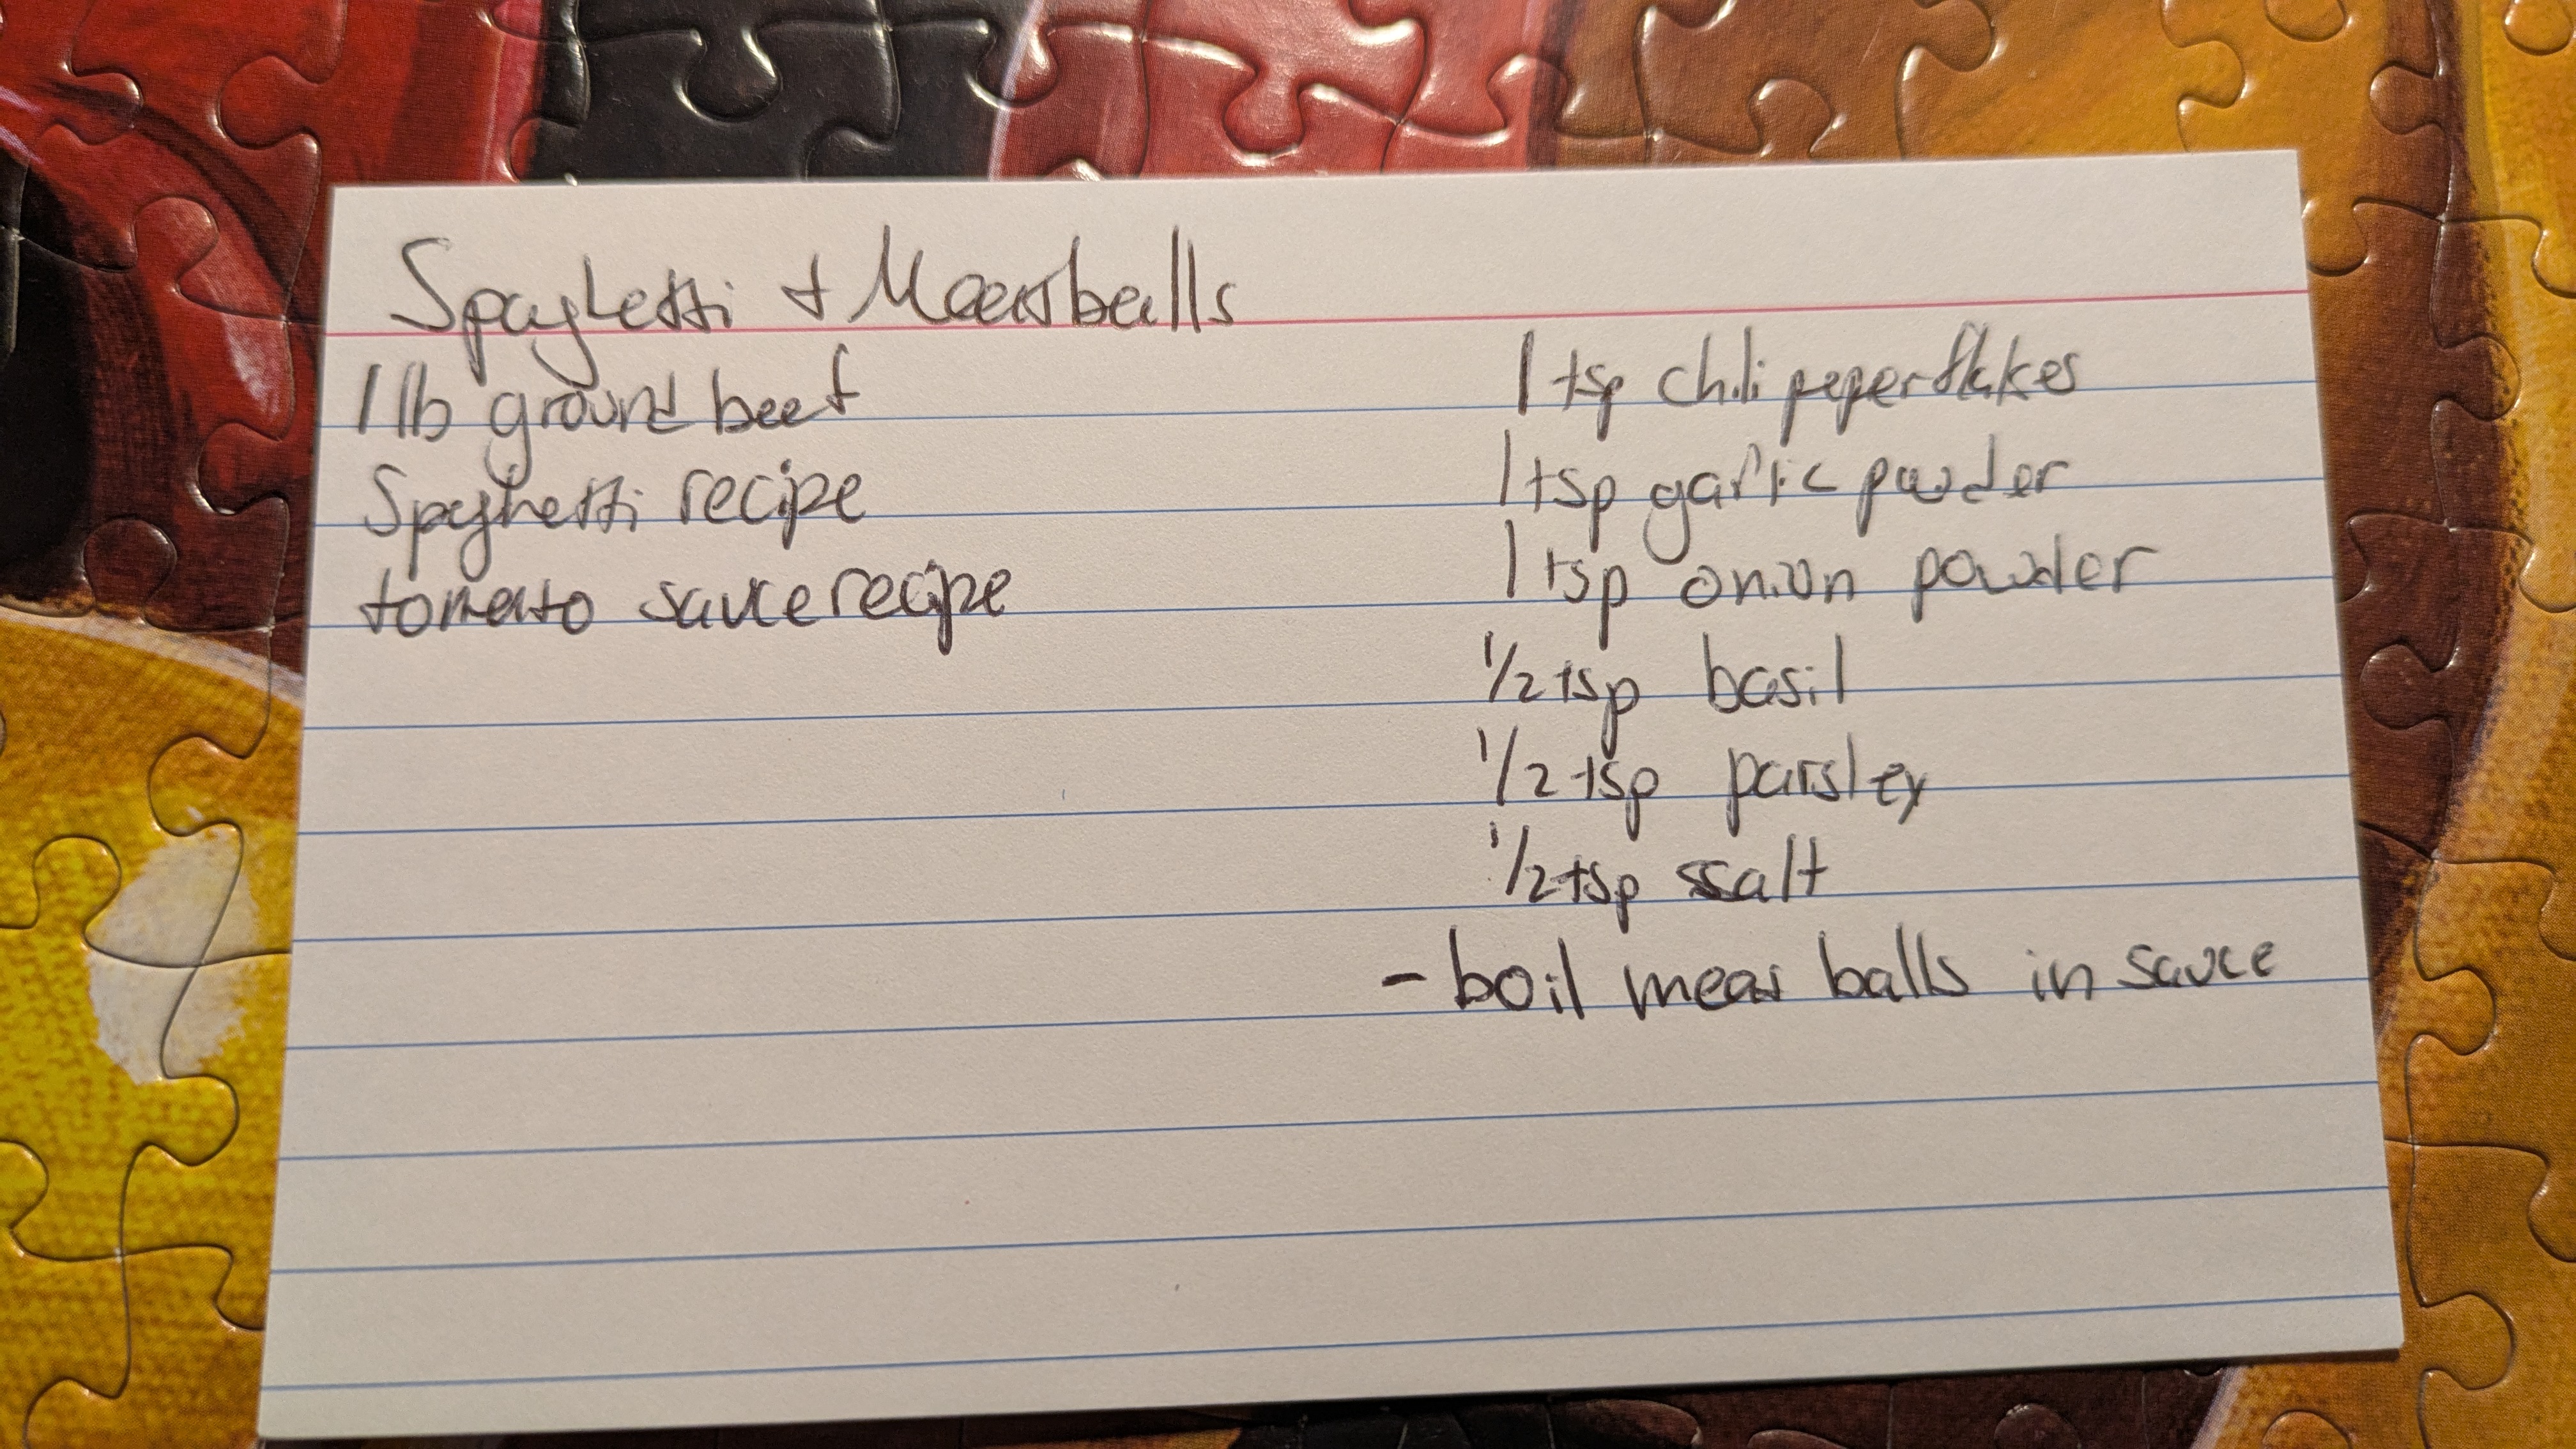 Spaghetti + Meatballs
1 lb ground beef
Spaghetti recipe
tomato sauce recipe
1 tsp chili peper flakes
1 tsp garlic powder
1 tsp onion powder
1/2 tsp basil
1/2 tsp parsley
1/2 tsp ssalt
- boil meat balls in sauce